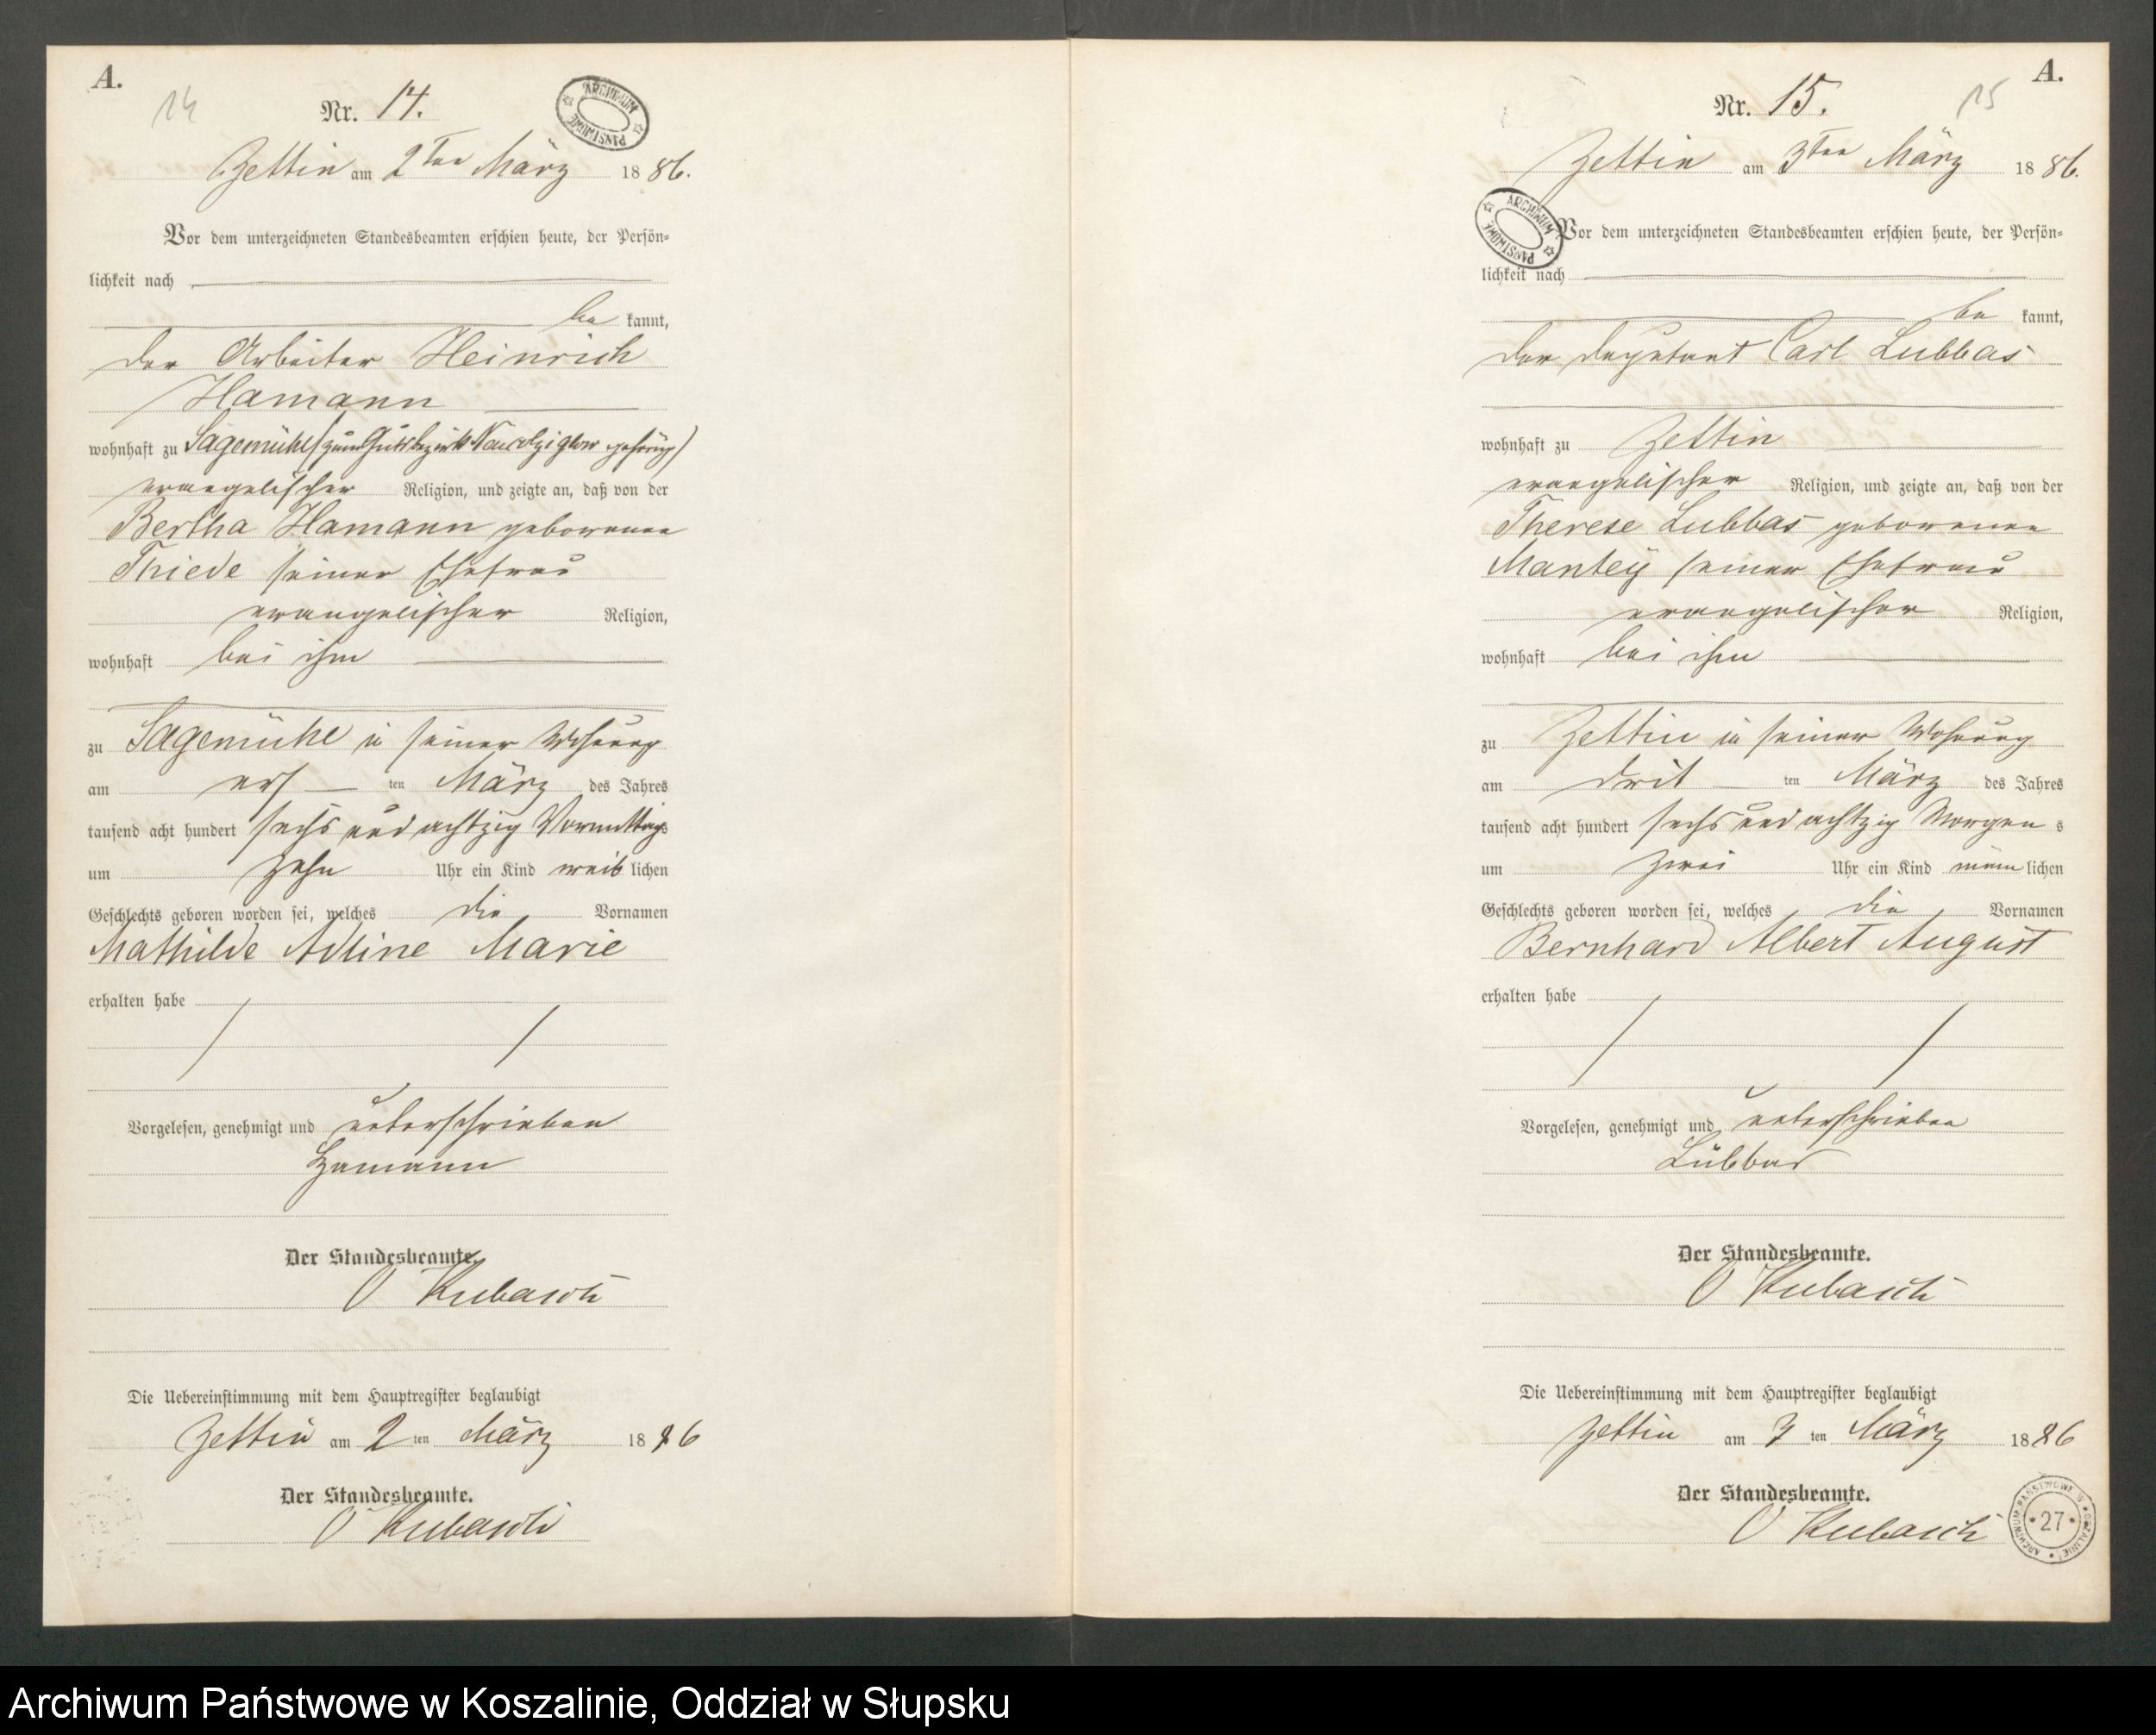 A.
14
Nr. 14.
ARCHIWUM PAŃSTWOWE
Zettin am 2ten März 1886.
Vor dem unterzeichneten Standesbeamten erschien heute, der Persön=
lichkeit nach
be kannt,
der Arbeiter Heinrich
Hamann
wohnhaft zu Sägemühle (zum Gutsbezirk gehörig)
evangelischer Religion, und zeigte an, daß von der
Bertha Hamann geborenen
Thiede seiner Ehefrau
evangelischer Religion,
wohnhaft bei ihm
zu Sägemühle in seiner Wohnung
am ers ten März des Jahres
tausend acht hundert sechs und achtzig Vormittags
um zehn Uhr ein Kind weib lichen
Geschlechts geboren worden sei, welches die Vornamen
Mathilde Adline Marie
erhalten habe
Vorgelesen, genehmigt und unterschrieben
Hamann
Der Standesbeamte.
O Kubasch
Die Uebereinstimmung mit dem Hauptregister beglaubigt
Zettin am 2 ten März 1886
Der Standesbeamte.
O Kubasch
A.
15
Nr. 15.
Zettin am 3ten März 1886.
ARCHIWUM PAŃSTWOWE
Vor dem unterzeichneten Standesbeamten erschien heute, der Persön=
lichkeit nach
be kannt,
der Deputant Carl Lubbas
wohnhaft zu Zettin
evangelischer Religion, und zeigte an, daß von der
Therese Lubbas geborenen
Mantey seiner Ehefrau
evangelischer Religion,
wohnhaft bei ihm
zu Zettin in seiner Wohnung
am drit ten März des Jahres
tausend acht hundert sechs und achtzig Morgen s
um zwei Uhr ein Kind männ lichen
Geschlechts geboren worden sei, welches die Vornamen
Bernhard Albert August
erhalten habe
Vorgelesen, genehmigt und unterschrieben
Lubbas
Der Standesbeamte.
O Kubasch
Die Uebereinstimmung mit dem Hauptregister beglaubigt
Zettin am 3 ten März 1886
Der Standesbeamte.
O Kubasch
ARCHIWUM PAŃSTWOWE W KOSZALINIE
27
Archiwum Państwowe w Koszalinie, Oddział w Słupsku